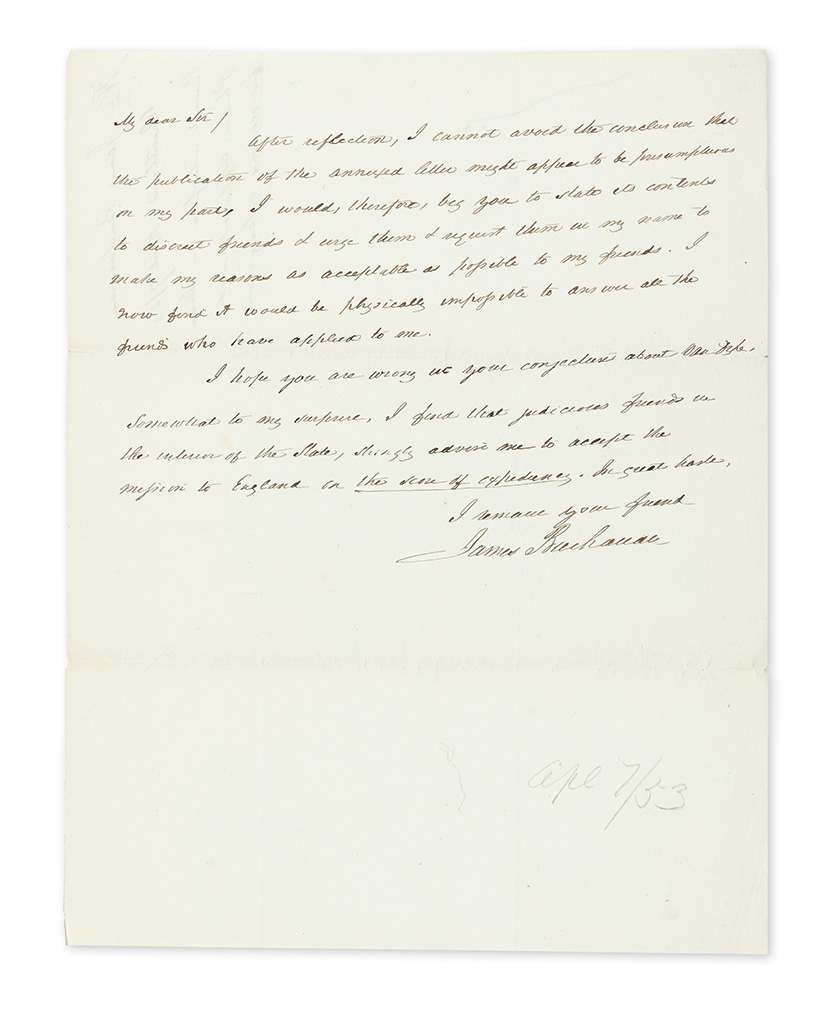 My dear Sir/
After reflection, I cannot avoid the conclusion that
the publication of the annexed letter might appear to be presumptuous
on my part, I would, therefore, beg you to state its contents
to discreet friends & urge them & request them in my name to
make my reasons as acceptable as possible to my friends. I
now find it would be physically impossible to answer all the
friends who have applied to me.
I hope you are wrong in your conjecture about Van Dyke.
Somewhat to my surprise, I find that judicious friends in
the interior of the State, strongly advise me to accept the
mission to England on the score of expediency. In great haste,
I remain your friend
James Buchanan
Apl 7/53